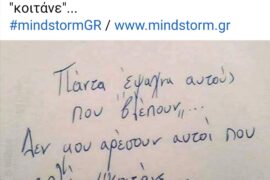 "κοιτάνε"...
#mindstormGR / www.mindstorm.gr
Πάντα έψαχνα αυτούς
που βλέπουν...
Δεν μου αρέσουν αυτοί που